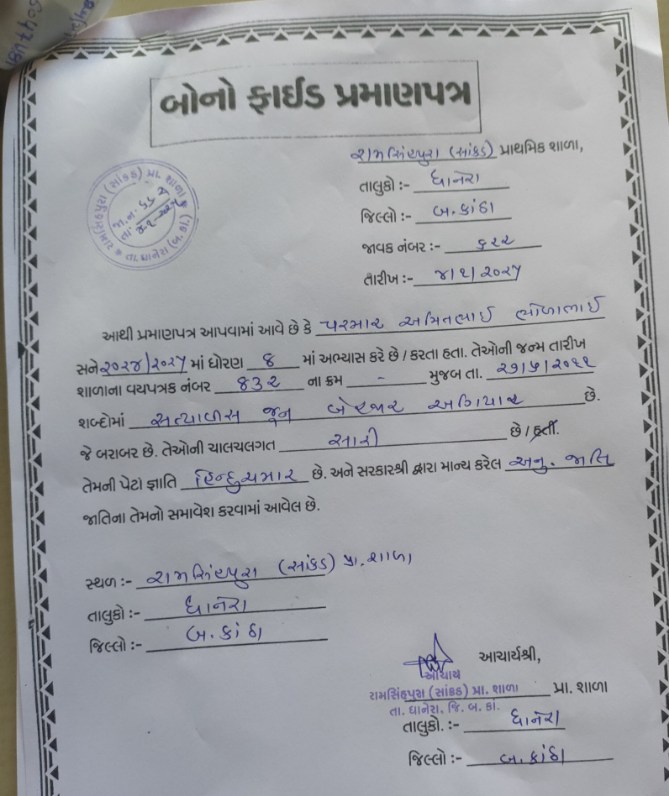 બોનો ફાઈડ પ્રમાણપત્ર
રામસિંહપુરા (સાંકડ) પ્રાથમિક શાળા,
તાલુકો :- ધાનેરા
જિલ્લો :- બ.કાંઠા
જાવક નંબર :- ૬૨૨
તારીખ :- ૪/૧/૨૦૨૫
રામસિંહપુરા (સાંકડ) પ્રા. શાળા
તા. ધાનેરા (બ.કાં.)
આથી પ્રમાણપત્ર આપવામાં આવે છે કે પરમાર અમિતભાઈ ભોળાભાઈ
સને ૨૦૨૪/૨૦૨૫ માં ધોરણ ૭ માં અભ્યાસ કરે છે / કરતા હતા. તેઓની જન્મ તારીખ
શાળાના વયપત્રક નંબર ૪૩૨ ના ક્રમ - મુજબ તા. ૨૭/૬/૨૦૧૧
શબ્દોમાં સત્યાવીસ જૂન બે હજાર અગિયાર છે.
જે બરાબર છે. તેઓની ચાલચલગત સારી છે / હતી.
તેમની પેટા જ્ઞાતિ હિન્દુ ચમાર છે. અને સરકારશ્રી દ્વારા માન્ય કરેલ અનુ. જાતિ
જાતિના તેમનો સમાવેશ કરવામાં આવેલ છે.
સ્થળ :- રામસિંહપુરા (સાંકડ) પ્રા. શાળા
તાલુકો :- ધાનેરા
જિલ્લો :- બ. કાંઠા
આચાર્યશ્રી,
આચાર્ય
રામસિંહપુરા (સાંકડ) પ્રા. શાળા પ્રા. શાળા
તા. ધાનેરા, જિ. બ. કાં.
તાલુકો. :- ધાનેરા
જિલ્લો :- બ. કાંઠા